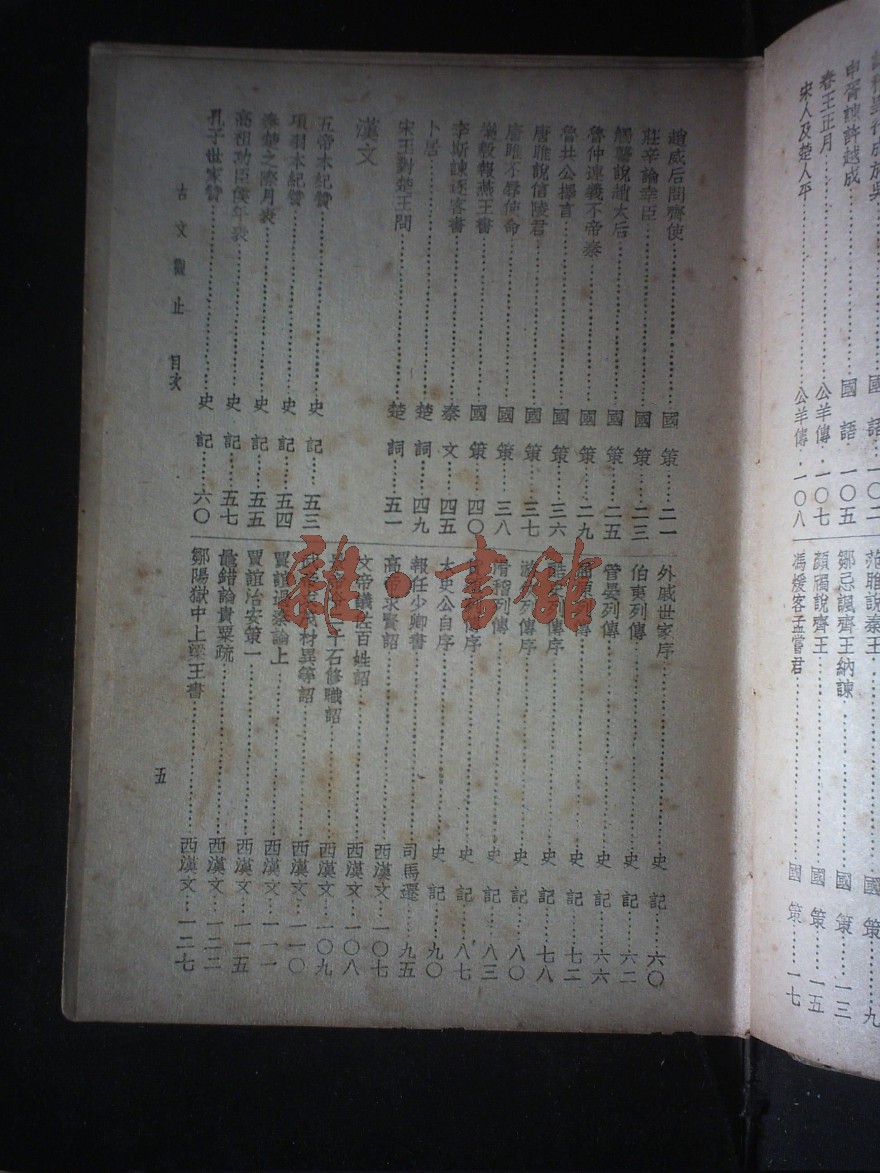 稽郢行成於吳……國語·一〇二
申胥諫許越成……國語·一〇五
春王正月……公羊傳·一〇七
宋人及楚人平……公羊傳·一〇八
范雎說秦王……國策……九
鄒忌諷齊王納諫……國策……一三
顏斶說齊王……國策……一五
馮煖客孟嘗君……國策……一七
趙威后問齊使……國策……二一
莊辛論幸臣……國策……二三
觸讋說趙太后……國策……二五
魯仲連義不帝秦……國策……二九
魯共公擇言……國策……三六
唐雎說信陵君……國策……三七
唐雎不辱使命……國策……三八
樂毅報燕王書……國策……四〇
李斯諫逐客書……秦文……四五
卜居……楚詞……四九
宋玉對楚王問……楚詞……五一
漢文
五帝本紀贊……史記……五三
項羽本紀贊……史記……五四
秦楚之際月表……史記……五五
高祖功臣侯年表……史記……五七
孔子世家贊……史記……六〇
外戚世家序……史記……六〇
伯夷列傳……史記……六二
管晏列傳……史記……六六
屈原列傳……史記……七二
酷吏列傳序……史記……七八
游列傳序……史記……八〇
滑稽列傳……史記……八三
列傳序……史記……八七
太史公自序……史記……九〇
報任少卿書……司馬遷……九五
高帝求賢詔……西漢文……一〇七
文帝議佐百姓詔……西漢文……一〇八
千石修職詔……西漢文……一〇九
材異等詔……西漢文……一一〇
賈誼過秦論上……西漢文……一一一
賈誼治安策一……西漢文……一一五
鼂錯論貴粟疏……西漢文……一二二
鄒陽獄中上梁王書……西漢文……一二七
古文觀止 目次
五
雜·書館